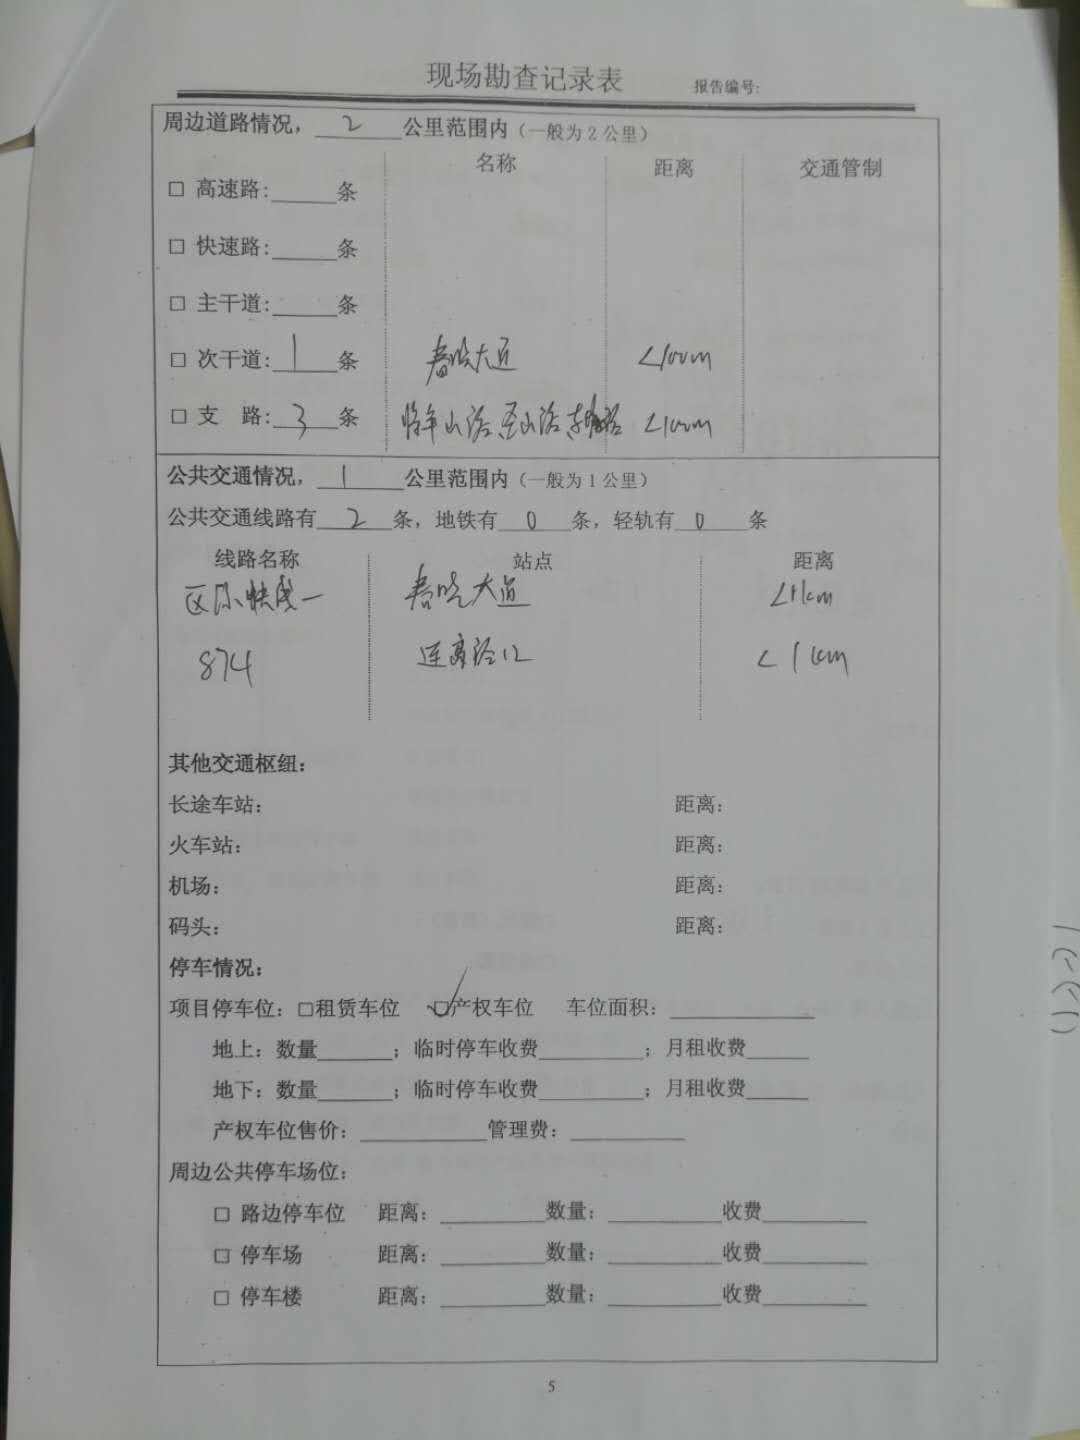 现场勘查记录表 报告编号:
周边道路情况，2公里范围内（一般为2公里）
名称 距离 交通管制
□ 高速路:______条
□ 快速路:______条
□ 主干道:______条
□ 次干道: 1 条 春晓大道 <100m
□ 支 路: 3 条 山路、山路、路 <100m
公共交通情况，1公里范围内（一般为1公里）
公共交通线路有 2 条，地铁有 0 条，轻轨有 0 条
线路名称 站点 距离
区快线一 春晓大道 <1km
874 路口 <1km
其他交通枢纽：
长途车站： 距离：
火车站： 距离：
机场： 距离：
码头： 距离：
停车情况：
项目停车位：□租赁车位 ☑产权车位 车位面积：____________
地上：数量______；临时停车收费________；月租收费_____
地下：数量______；临时停车收费________；月租收费_____
产权车位售价：__________管理费：_________
周边公共停车场位：
□ 路边停车位 距离：________数量：_________收费________
□ 停车场 距离：________数量：_________收费________
□ 停车楼 距离：________数量：_________收费________
5